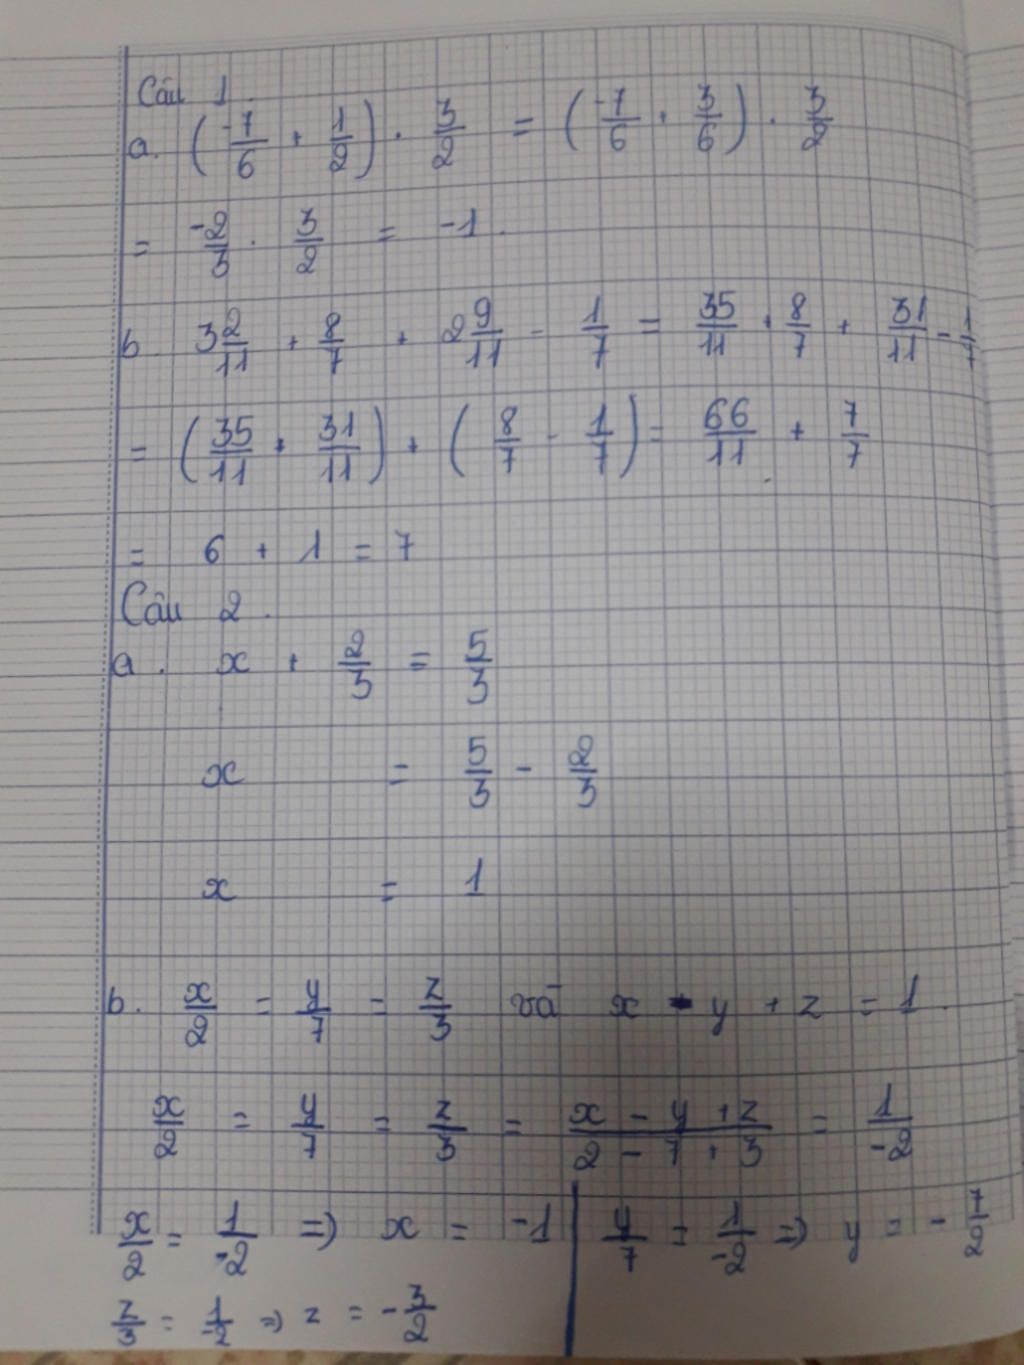 Câu 1.
a. (-7/6 + 1/2) . 3/2 = (-7/6 + 3/6) . 3/2
= -2/3 . 3/2 = -1.
b. 3 2/11 + 8/7 + 2 9/11 - 1/7 = 35/11 + 8/7 + 31/11 - 1/7
= (35/11 + 31/11) + (8/7 - 1/7) = 66/11 + 7/7
= 6 + 1 = 7
Câu 2.
a. x + 2/3 = 5/3
x = 5/3 - 2/3
x = 1
b. x/2 = y/7 = z/3 và x - y + z = 1.
x/2 = y/7 = z/3 = (x - y + z)/(2 - 7 + 3) = 1/-2
x/2 = 1/-2 => x = -1 | y/7 = 1/-2 => y = -7/2
z/3 = 1/-2 => z = -3/2